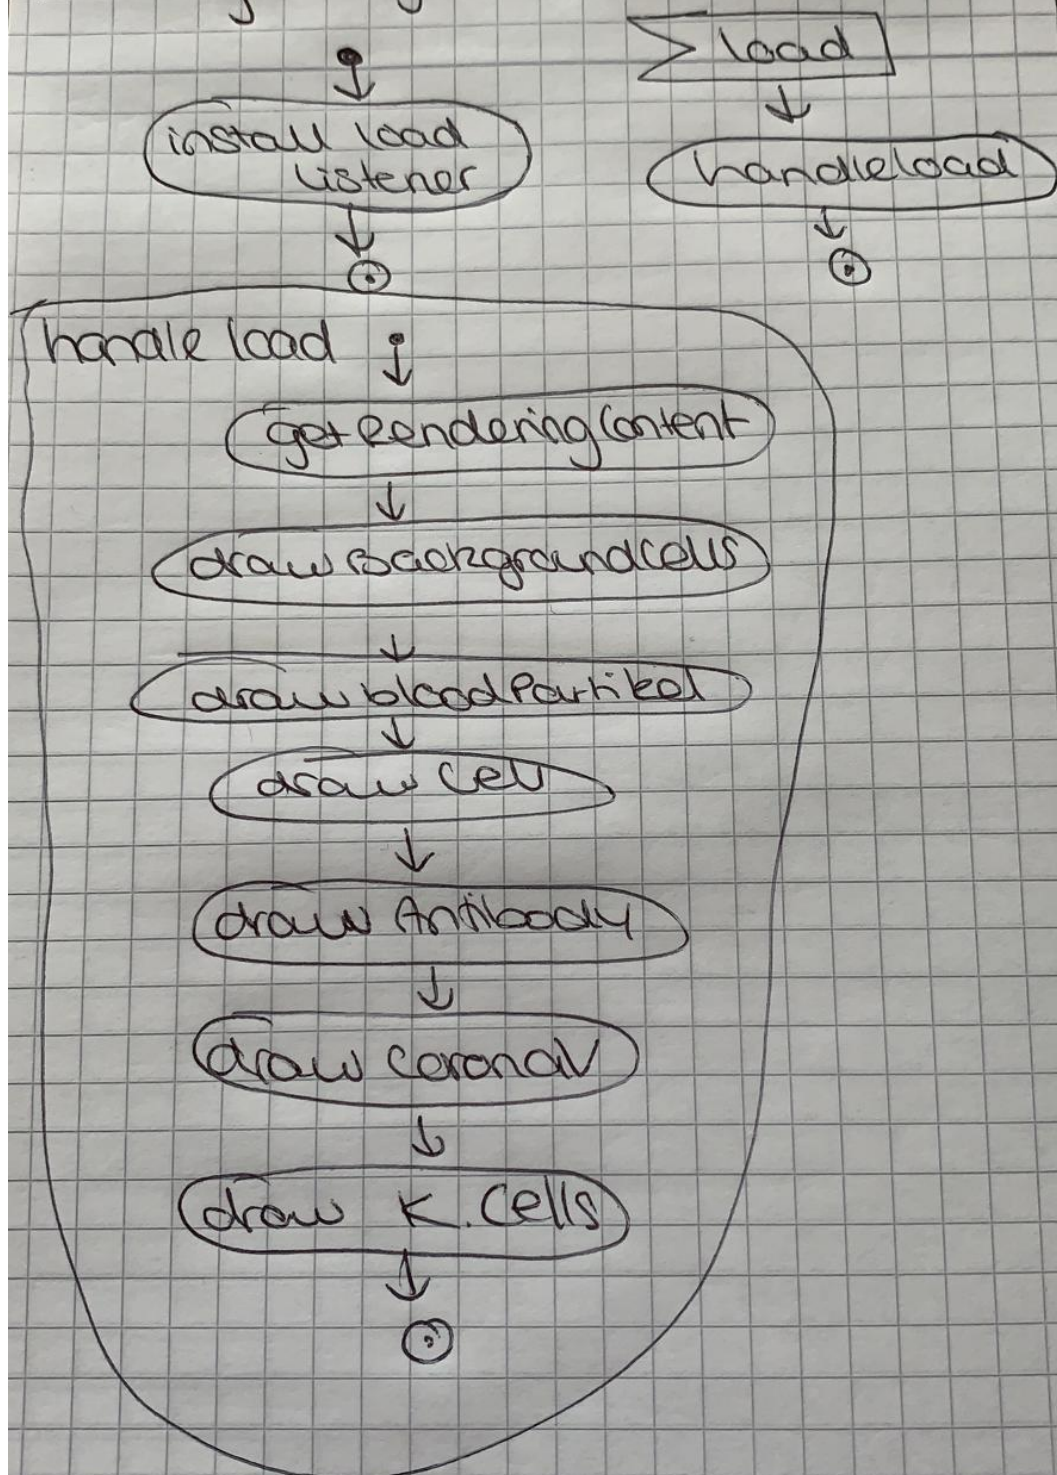 install load
listener
load
handleload
handle load
getRenderingContent
draw Backgroundcells
draw bloodPartikel
draw Cell
draw Antibody
draw CoronaV
draw K. Cells